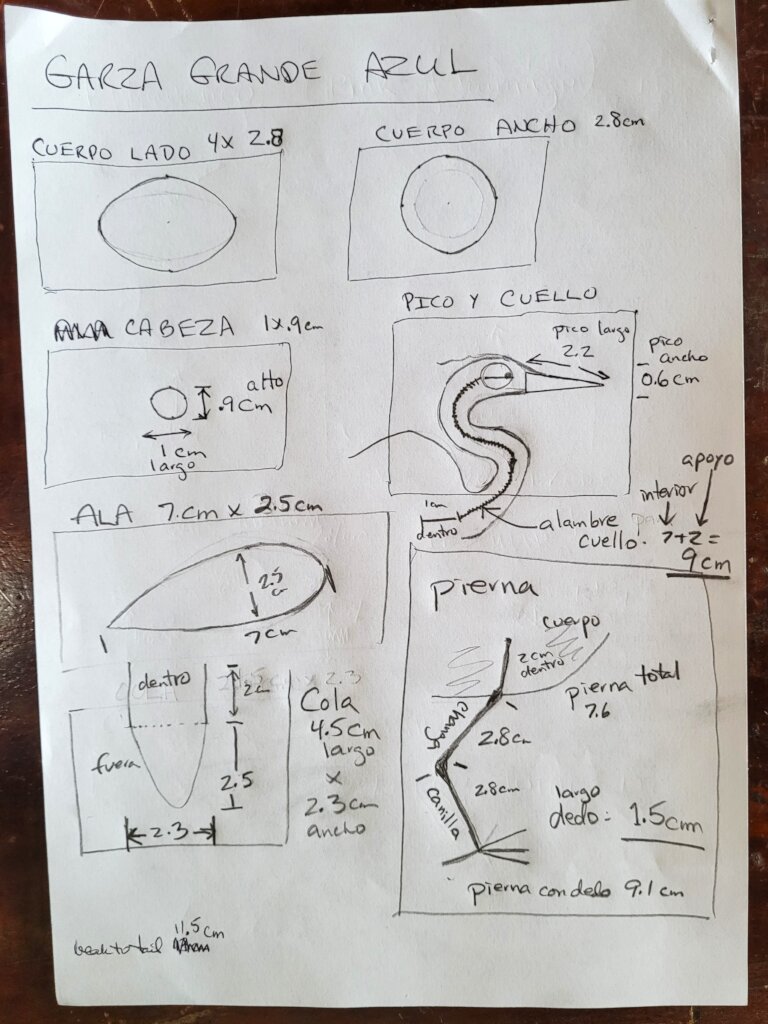 GARZA GRANDE AZUL
CUERPO LADO 4x 2.8
CUERPO ANCHO 2.8cm
CABEZA 1x.9cm
alto
.9cm
1cm
largo
PICO Y CUELLO
pico largo
2.2
pico
ancho
0.6cm
1cm
dentro
alambre
cuello.
interior
apoyo
7+2=
9cm
ALA 7cm x 2.5cm
2.5
c
7cm
dentro
2cm
fuera
2.5
2.3
Cola
4.5cm
largo
x
2.3cm
ancho
pierna
cuerpo
2cm
dentro
pierna total
7.6
2.8cm
2.8cm
canilla
largo
dedo: 1.5cm
pierna con dedo 9.1 cm
11.5cm
beak to tail